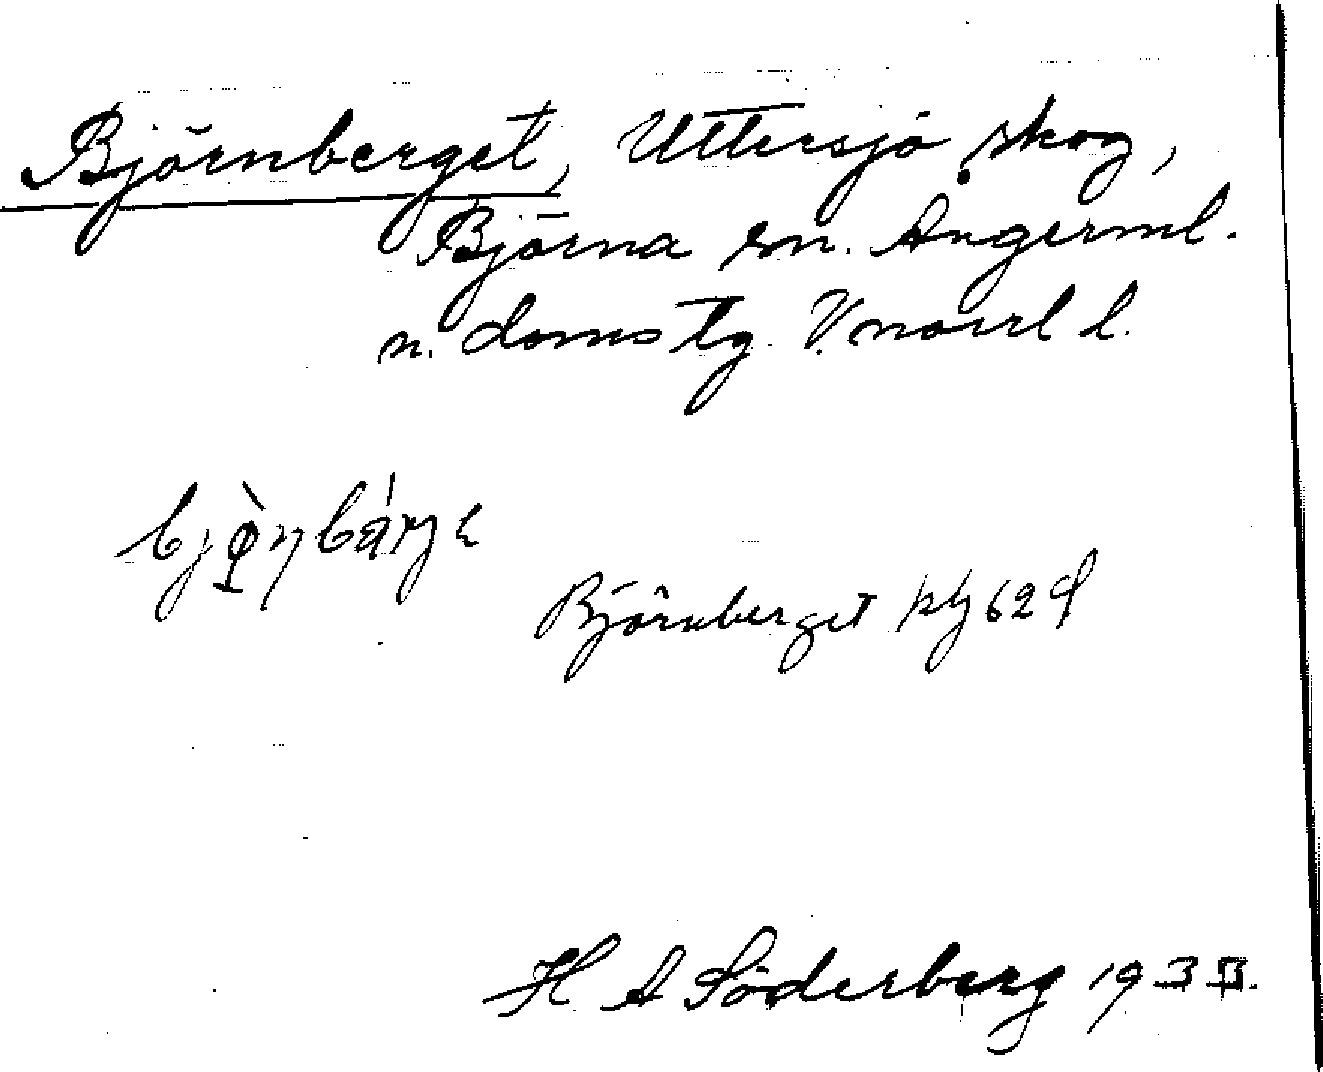 Björnberget, Uttersjö skog,
Björna sn. Ångerml.
n. doms tg. V. norrl l.
Björnberget
H A Söderberg 193